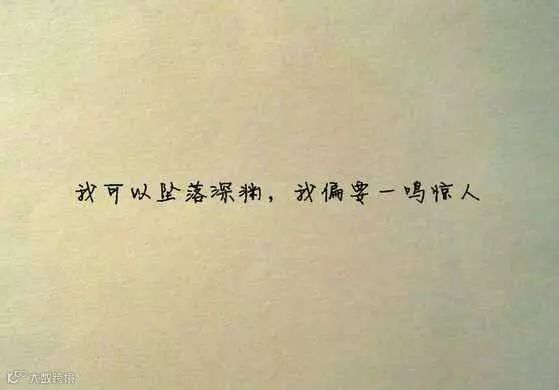 我可以坠落深渊，我偏要一鸣惊人
大数跨境